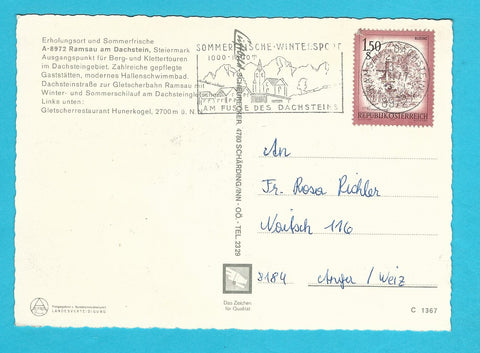 Erholungsort und Sommerfrische
A-8972 Ramsau am Dachstein, Steiermark
Ausgangspunkt für Berg- und Klettertouren
im Dachsteingebiet. Zahlreiche gepflegte
Gaststätten, modernes Hallenschwimmbad.
Dachsteinstraße zur Gletscherbahn Ramsau mit
Winter- und Sommerschilauf am Dachsteingletscher.
Links unten:
Gletscherrestaurant Hunerkogel, 2700 m ü. N.
SOMMERFRISCHE - WINTERSPORT
1000
AM FUSSE DES DACHSTEINS
1.50
S
REPUBLIK ÖSTERREICH
8972
4780 SCHÄRDING/INN - OÖ. - TEL. 2329
An
Fr. Rosa Richler
Naitsch 116
8184 Anger / Weiz
LANDESVERTEIDIGUNG
Das Zeichen
für Qualität
C 1367